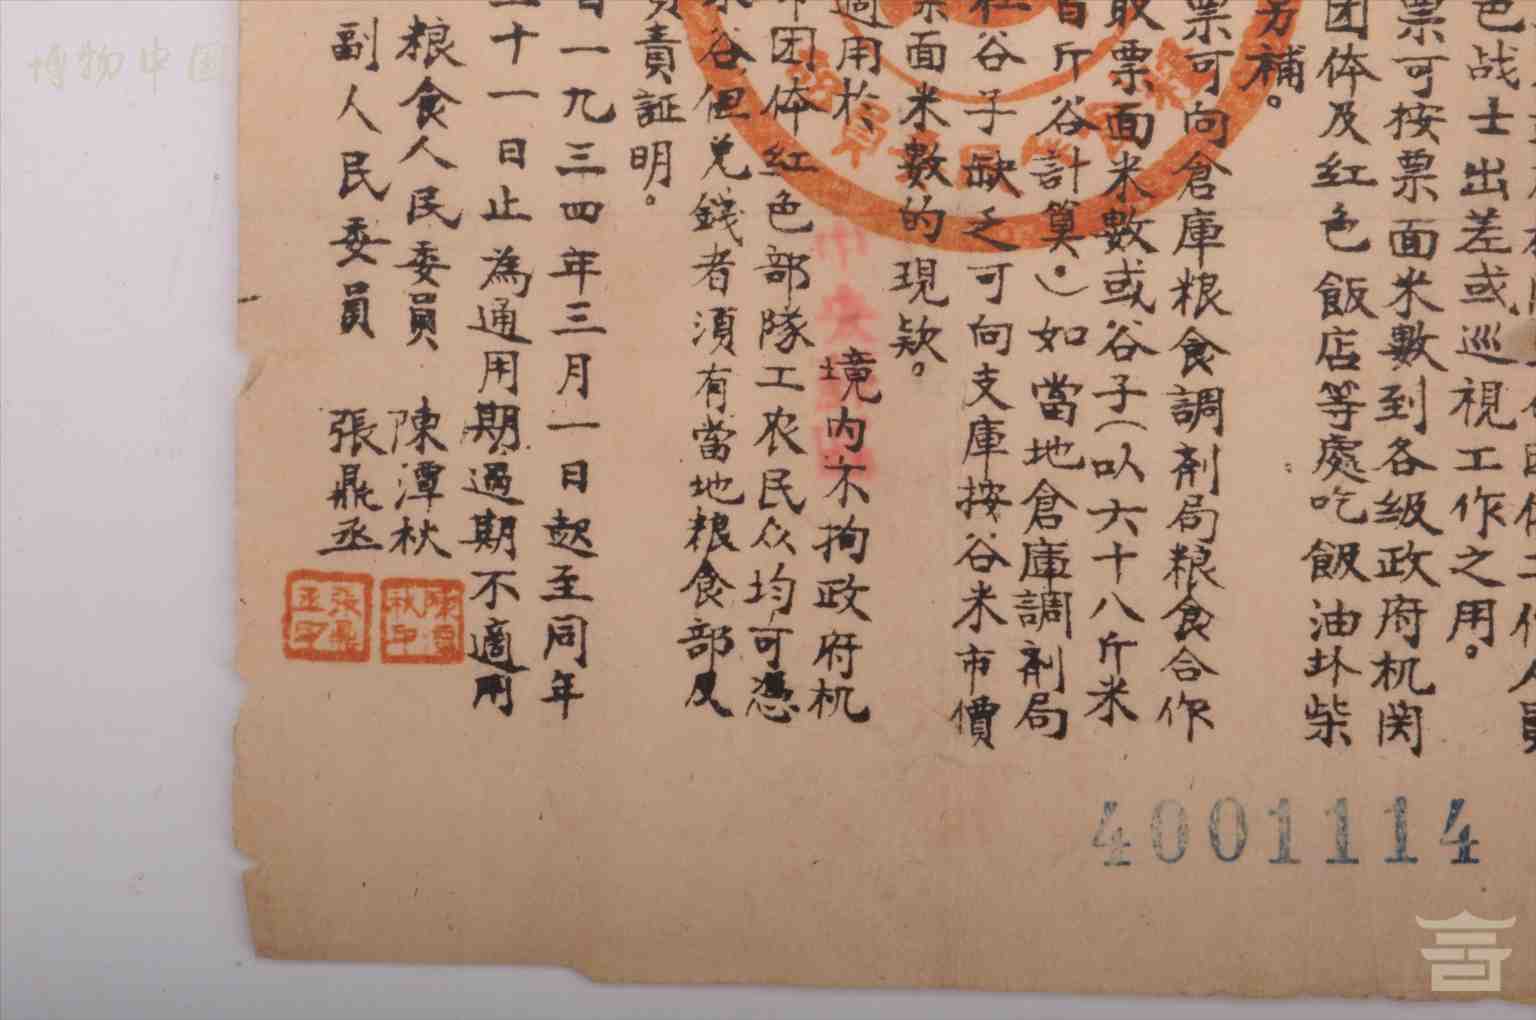 色战士出差或巡視工作之用。
票可按票面米數到各級政府机関
团体及紅色飯店等處吃飯油壮柴
另補。
票可向倉庫粮食調剂局粮食合作
取票面米數或谷子(以六十八斤米
百斤谷計算)如當地倉庫調剂局
社谷子缺乏可向支庫按谷米市價
票面米數的現欵。
適用於
中央
境内不拘政府机
团体紅色部隊工农民众均可憑
谷但兑錢者須有當地粮食部及
責証明。
一九三四年三月一日起至同年
十一日止為通用期過期不適用
粮食人民委員 陳潭秋
副人民委員 張鼎丞
4001114
博物中国